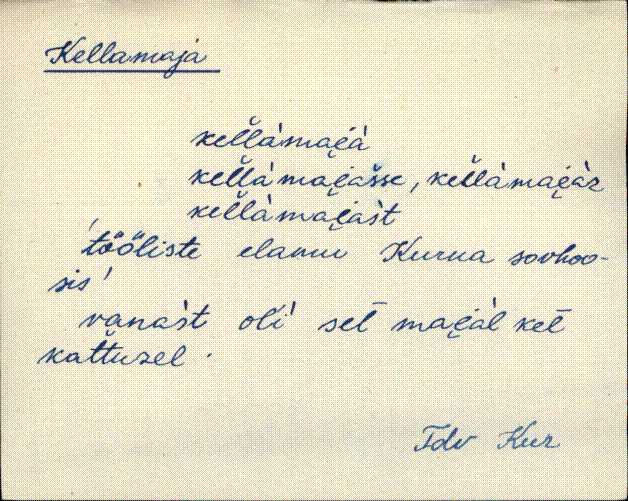 Kellamaja
kel̆làmai̯à
kel̆làmai̯as̆se, kel̆làmai̯àz
kel̆làmai̯àst
'tööliste elamu Kurna sovhoo-
sis'
vanàst olì sel̄ mai̯àl kel̄
kattuzel.
Tdv Kur